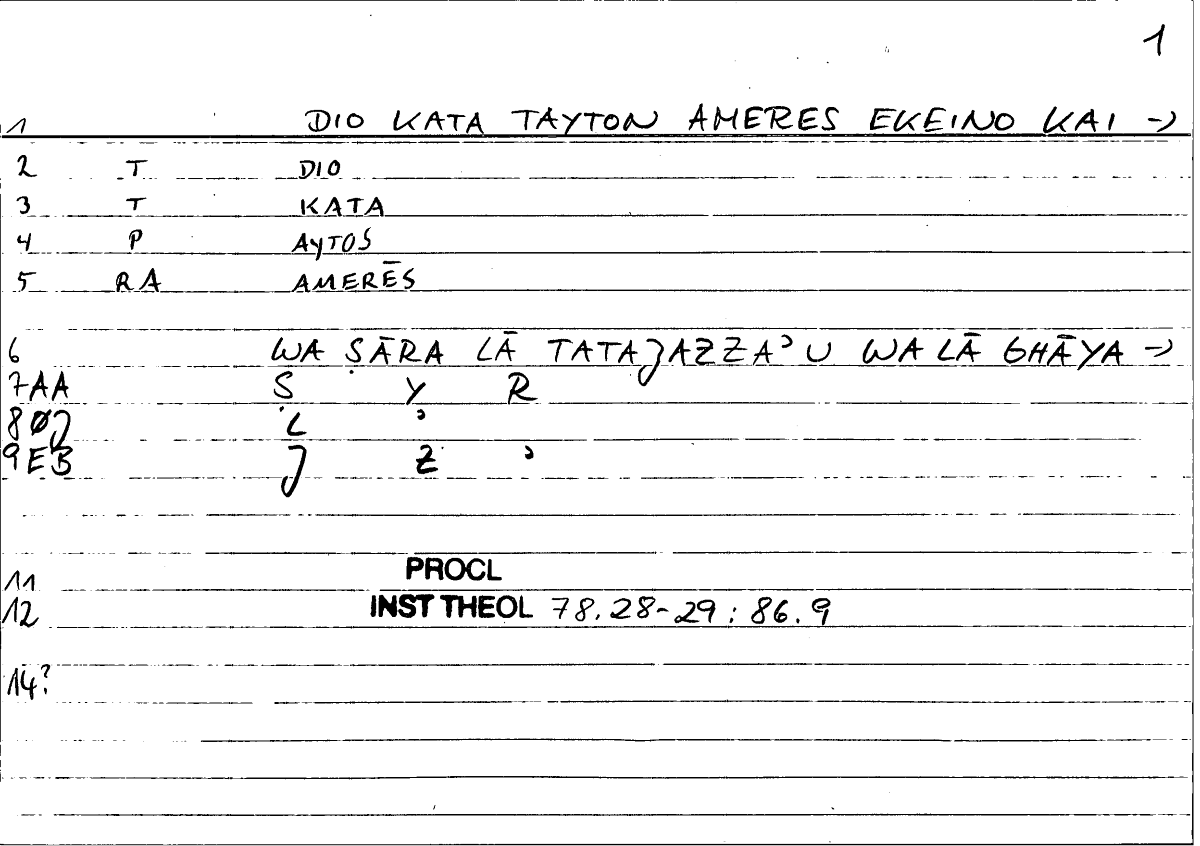 1
1 DIO KATA TAYTON AMERES EKEINO KAI →
2 T DIO
3 T KATA
4 P AYTOS
5 RA AMERĒS
6 WA ṢĀRA LĀ TATAJAZZAʾU WA LĀ GHĀYA →
7AA Ṣ Y R
8ØJ L ʾ
9EB J Z ʾ
11 PROCL
12 INST THEOL 78.28-29 : 86.9
14?